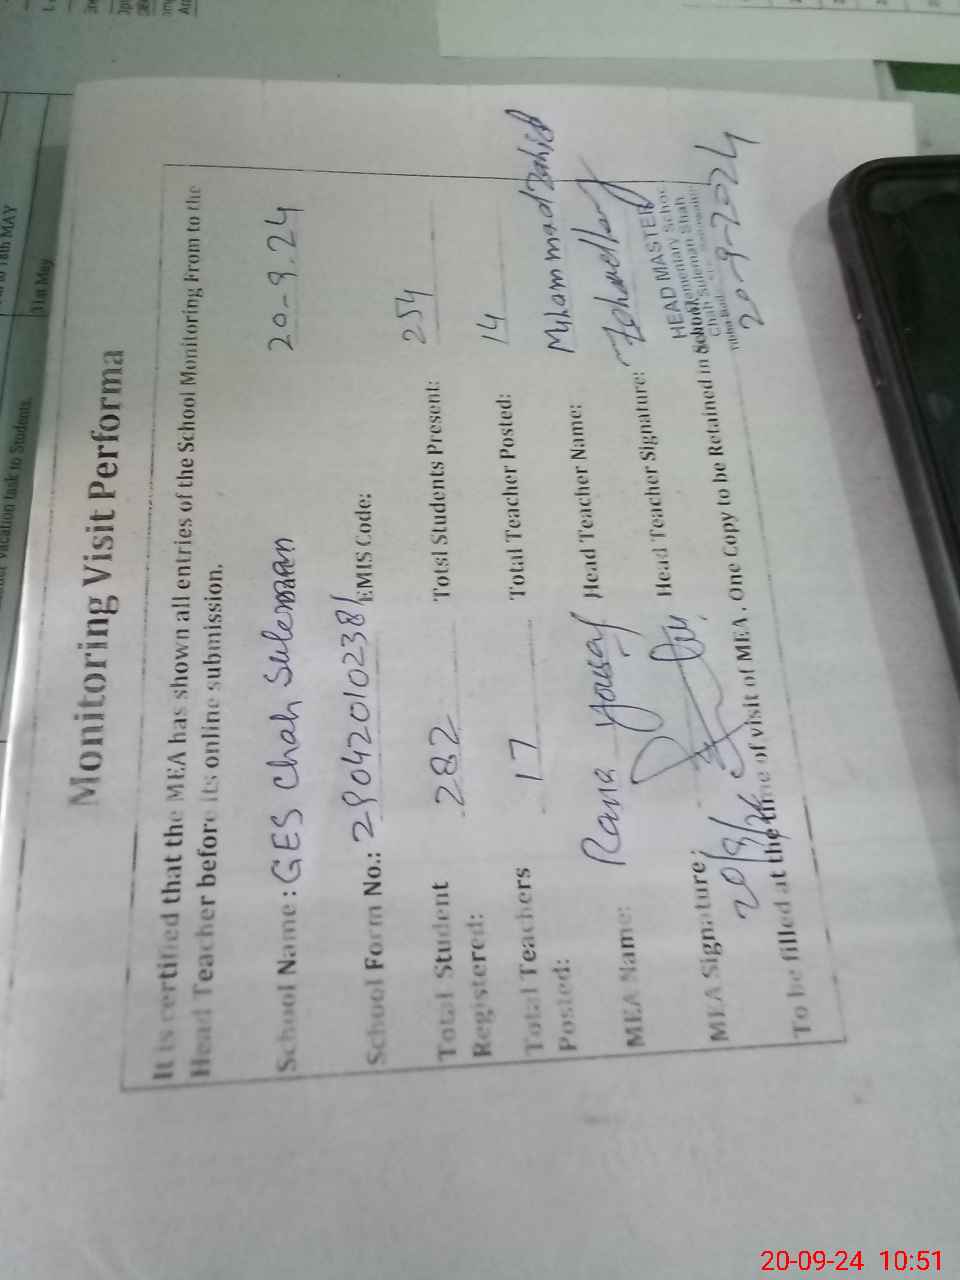 Monitoring Visit Performa
It is certified that the MEA has shown all entries of the School Monitoring From to the
Head Teacher before its online submission.
School Name : GES Chah Suleman 20-9.24
School Form No.: 29042010238/ EMIS Code:
Total Student Registered: 282 Totsl Students Present: 254
Total Teachers Posted: 17 Total Teacher Posted: 14
MEA Name: Rana Yousaf Head Teacher Name: Muhammad Zahid
MEA Signature: Head Teacher Signature:
HEAD MASTER
Elementary School
Chah Suleman Shah
20/9/24
To be filled at the time of visit of MEA . One Copy to be Retained in School.
20-9-2024
to 18th MAY
31st May
vacation task to Students.
20-09-24 10:51